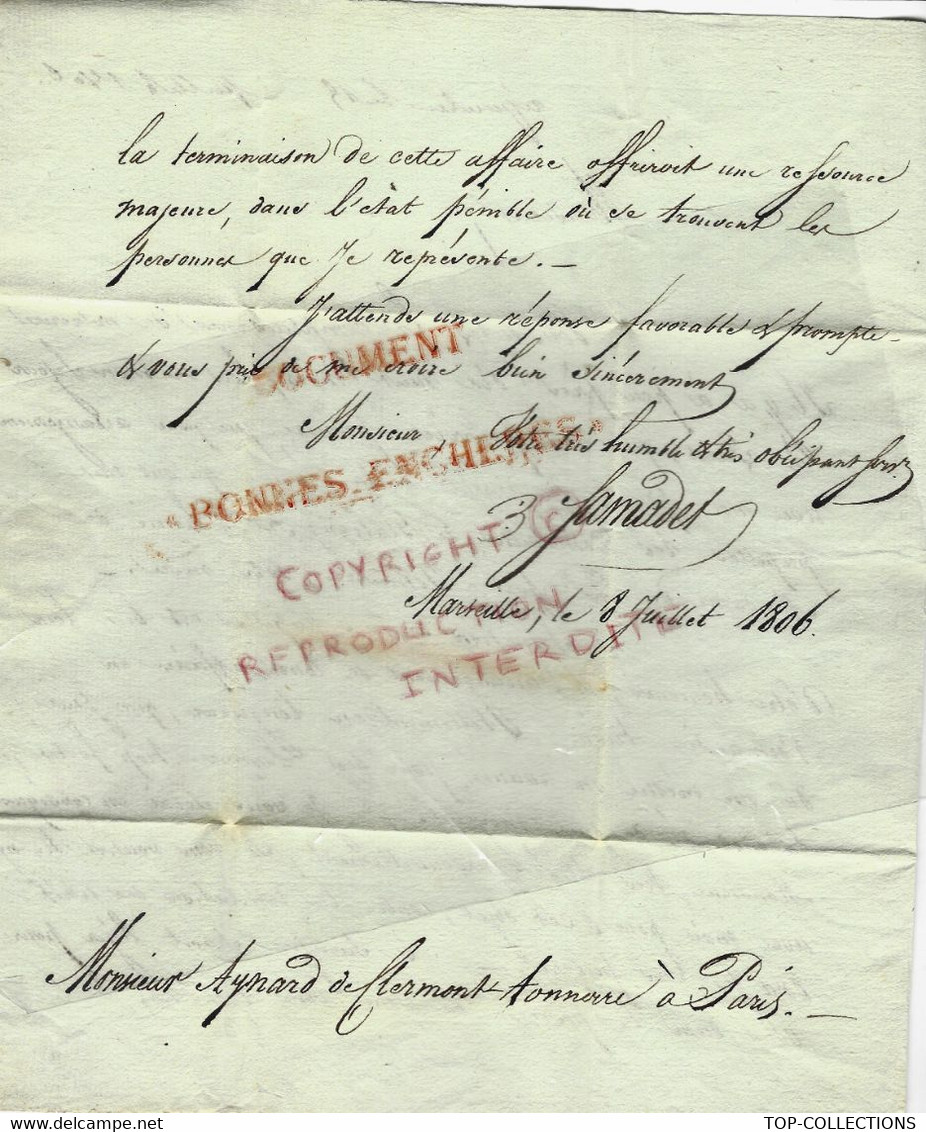 la terminaison de cette affaire offriroit une ressource
majeure, dans l'état pénible où se trouvent les
personnes que Je représente. —
J'attends une réponse favorable & prompte
& vous prie de me croire bien sincèrement
DOCUMENT
Monsieur, Votre très humble & très obéissant servr
« BONNES ENCHERES »
Samadet
COPYRIGHT ©
Marseille, le 8 Juillet 1806.
REPRODUCTION
INTERDITE
Monsieur Aynard de Clermont-tonnerre à Paris. —
TOP-COLLECTIONS